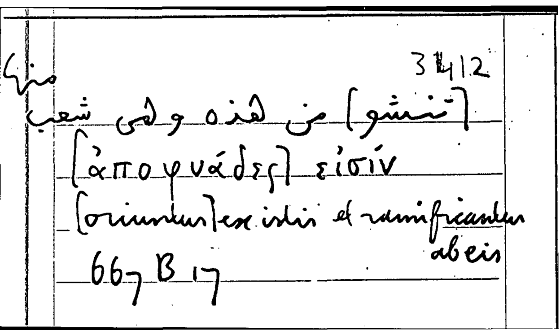 31412
[تنشو] من هذه وهى شعب منها
[ἀποφυάδες] εἰσίν
[oriuntur] ex istis et ramificantur
ab eis
667 B 17